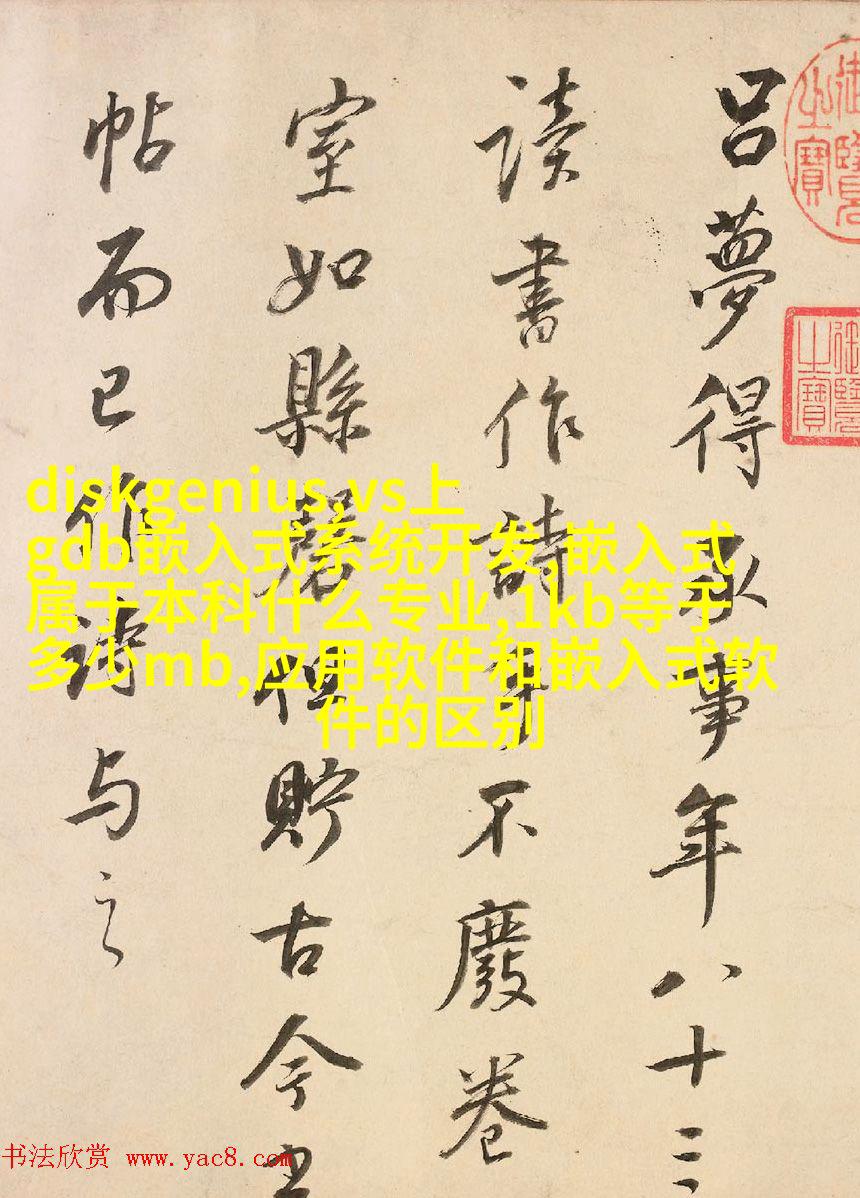 呂夢得承事年八十三
讀書作詩不廢卷
室如縣磬但貯古今
帖而已作詩与之
御覽之寶
御覽之寶
diskgenius,vs上
gdb嵌入式系统开发,嵌入式
属于本科什么专业,1kb等于
多少mb,应用软件和嵌入式软
件的区别
书法欣赏 www.yac8.com